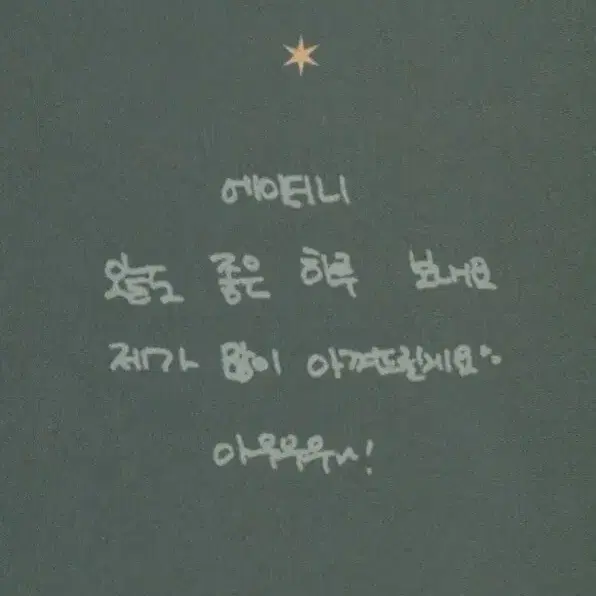 에이티니
오늘도 좋은 하루 보내요
제가 많이 아껴드릴게요
아우우우~!